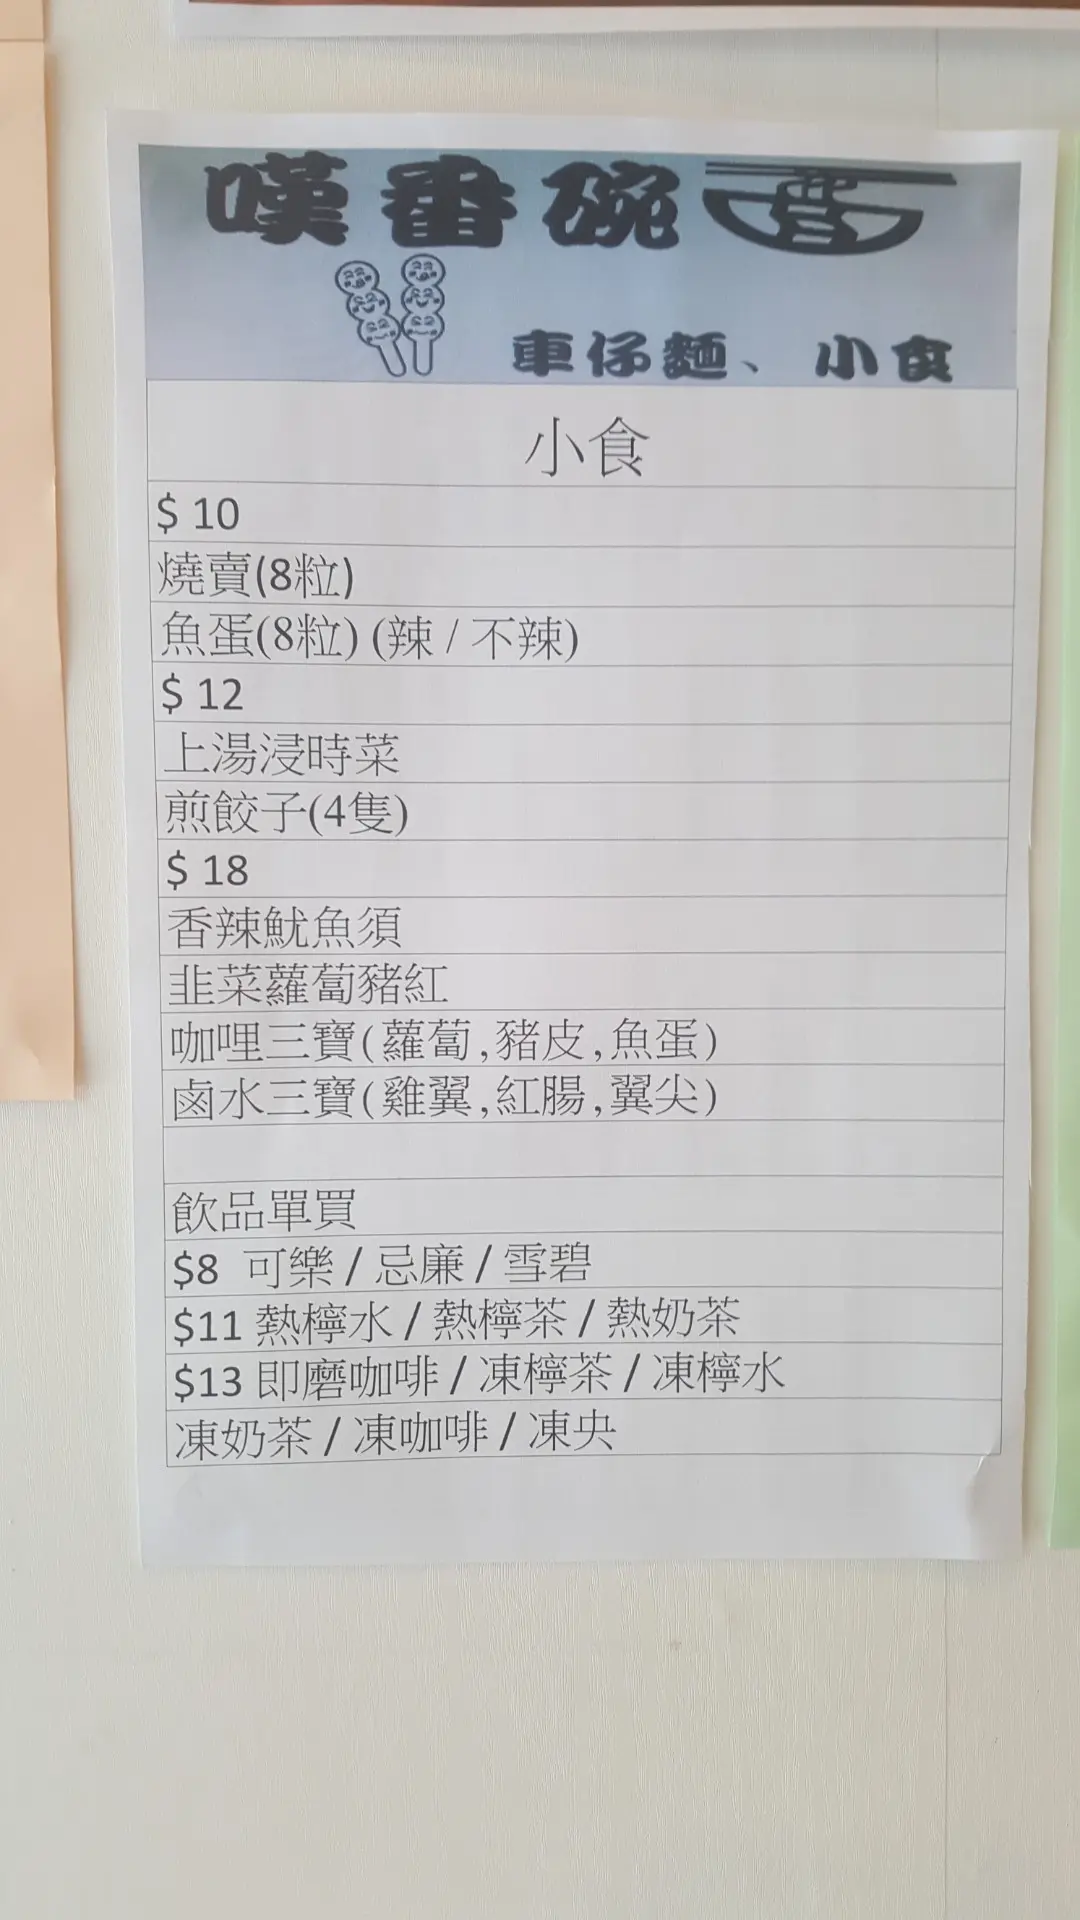 嘆番碗
車仔麵、小食
小食
$ 10
燒賣(8粒)
魚蛋(8粒) (辣 / 不辣)
$ 12
上湯浸時菜
煎餃子(4隻)
$ 18
香辣魷魚須
韭菜蘿蔔豬紅
咖哩三寶(蘿蔔,豬皮,魚蛋)
鹵水三寶(雞翼,紅腸,翼尖)
飲品單買
$8 可樂 / 忌廉 / 雪碧
$11 熱檸水 / 熱檸茶 / 熱奶茶
$13 即磨咖啡 / 凍檸茶 / 凍檸水
凍奶茶 / 凍咖啡 / 凍央